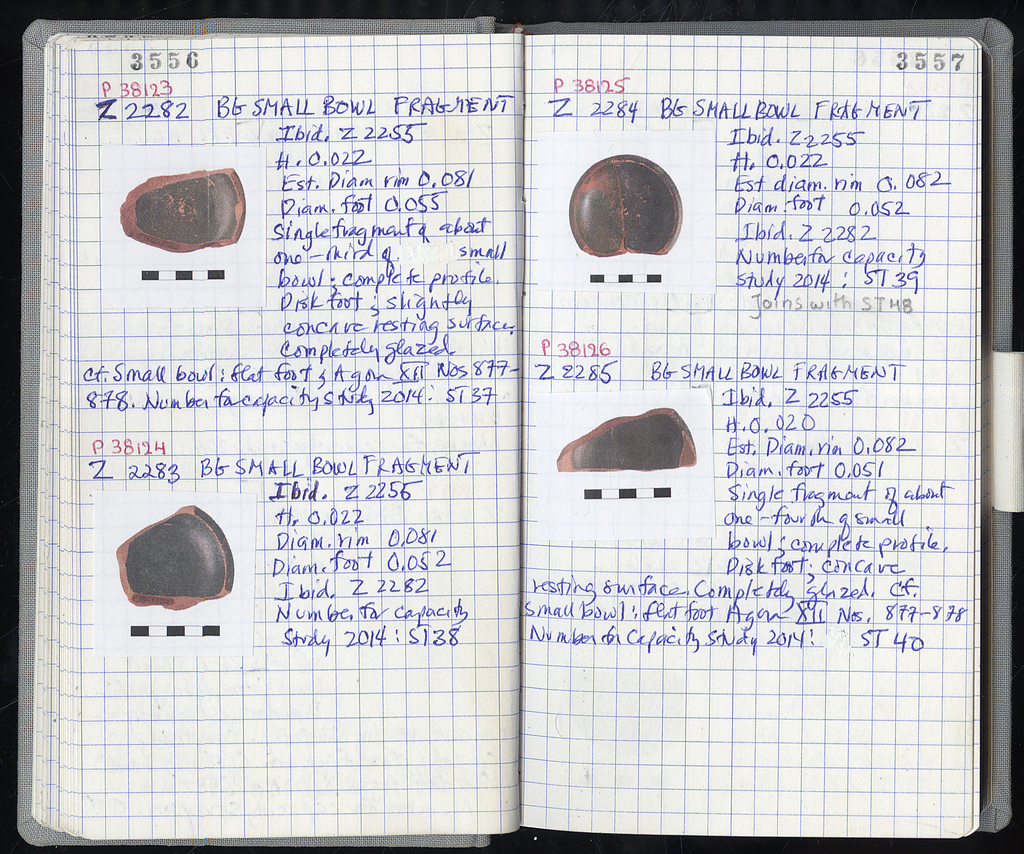 3556
P 38123
Z 2282 BG SMALL BOWL FRAGMENT
Ibid. Z 2255
H. 0.022
Est. Diam rim 0.081
Diam. foot 0.055
Single fragment of about
one-third of small
bowl; complete profile.
Disk foot; slightly
concave resting surface.
Completely glazed.
Cf. Small bowl: flat foot; Agora XII Nos 877-
878. Number for capacity Study 2014: ST37
P 38124
Z 2283 BG SMALL BOWL FRAGMENT
Ibid. Z 2255
H. 0.022
Diam. rim 0.081
Diam. foot 0.052
Ibid. Z 2282
Number for capacity
Study 2014: ST38
3557
P 38125
Z 2284 BG SMALL BOWL FRAGMENT
Ibid. Z2255
H. 0.022
Est diam. rim 0.082
Diam. foot 0.052
Ibid. Z 2282
Number for capacity
Study 2014: ST39
Joins with ST48
P 38126
Z 2285 BG SMALL BOWL FRAGMENT
Ibid. Z 2255
H. 0.020
Est. Diam. rim 0.082
Diam. foot 0.051
Single fragment of about
one-fourth of small
bowl; complete profile.
Disk foot; concave
resting surface. Completely glazed. Cf.
Small bowl: flat foot Agora XII Nos. 877-878
Number for Capacity Study 2014: ST 40